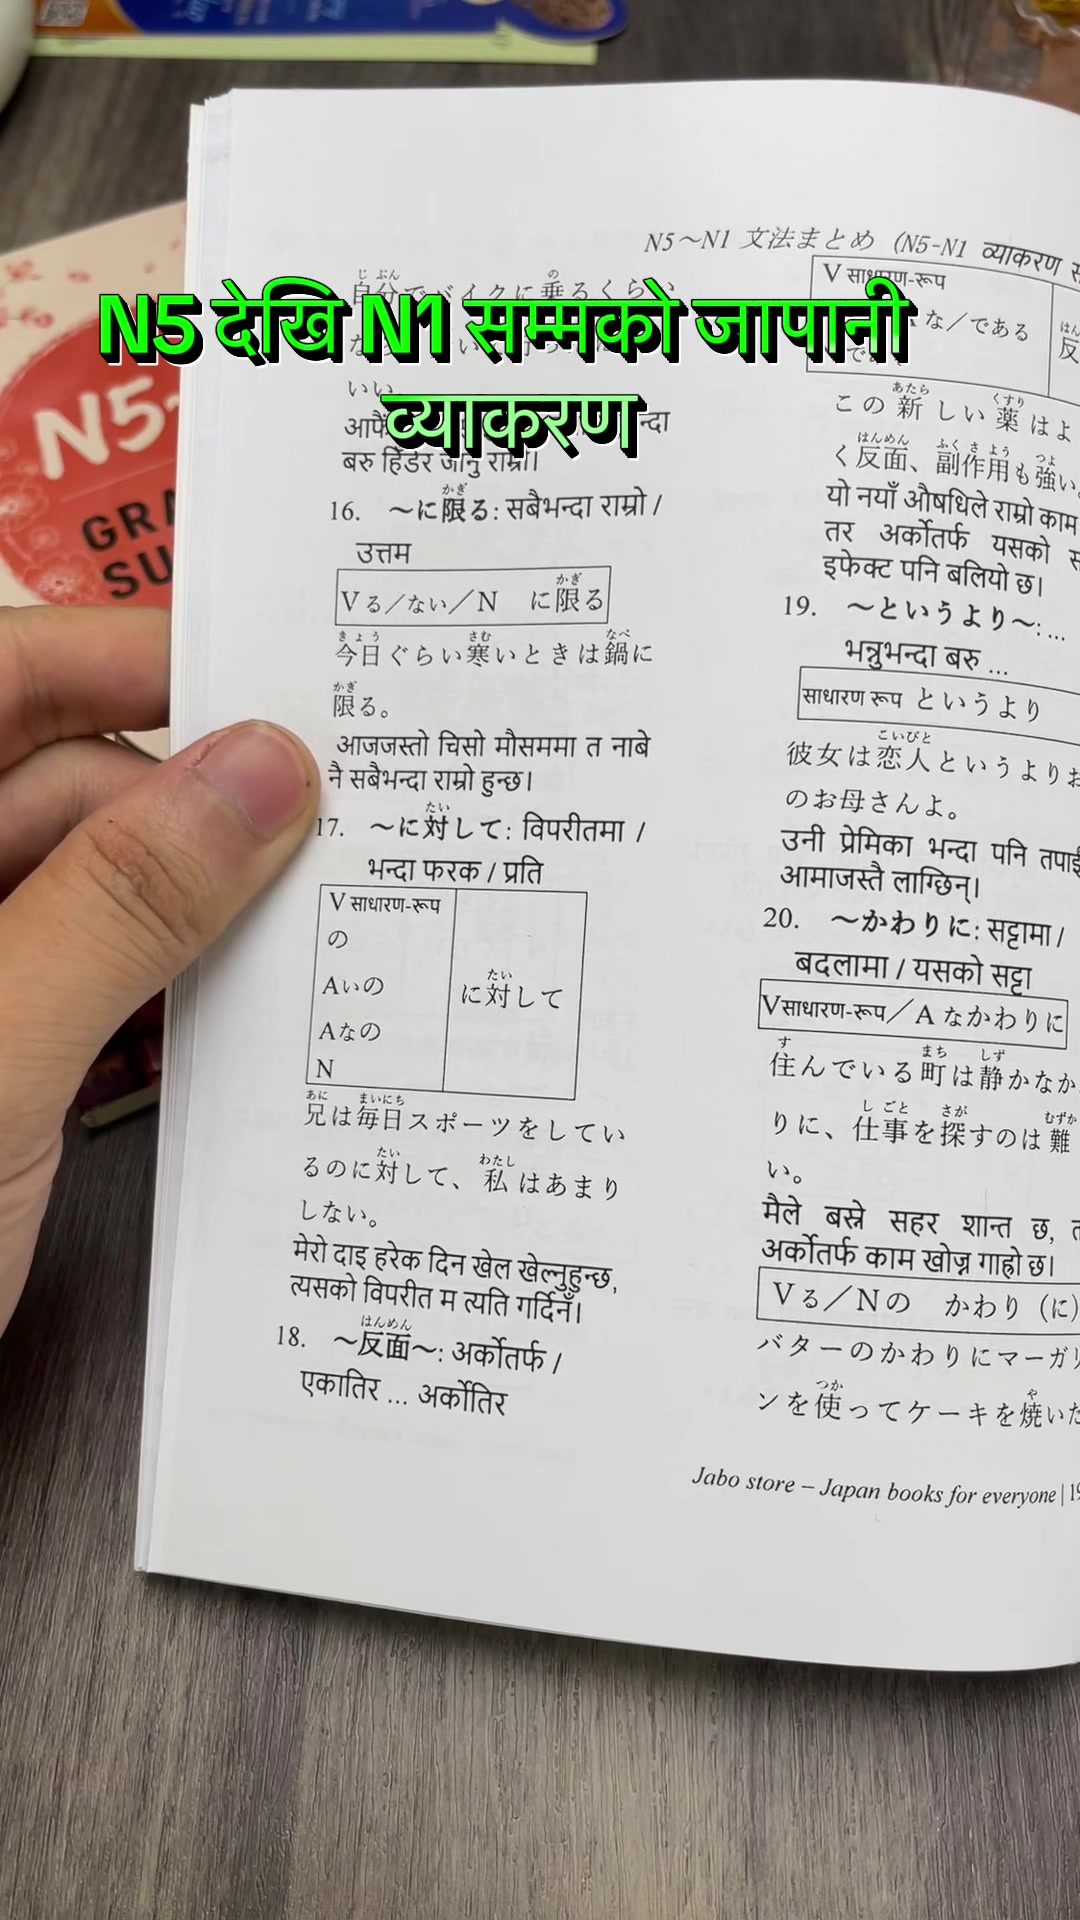 N5 देखि N1 सम्मको जापानी
व्याकरण
N5～N1 文法まとめ (N5-N1 व्याकरण
自分でバイクに乗るくらい
いい。
आफैं
बरु हिंडेर जानु राम्रो।
16. ～に限る: सबैभन्दा राम्रो /
उत्तम
Vる／ない／N に限る
今日ぐらい寒いときは鍋に
限る。
आजजस्तो चिसो मौसममा त नाबे
नै सबैभन्दा राम्रो हुन्छ।
17. ～に対して: विपरीतमा /
भन्दा फरक / प्रति
V साधारण-रूप
の
Aいの
Aなの
N
に対して
兄は毎日スポーツをしてい
るのに対して、私はあまり
しない。
मेरो दाइ हरेक दिन खेल खेल्नुहुन्छ,
त्यसको विपरीत म त्यति गर्दिनँ।
18. ～反面～: अर्कोतर्फ /
एकातिर ... अर्कोतिर
V साधारण-रूप
な／である
この新しい薬はよ
く反面、副作用も強い。
यो नयाँ औषधिले राम्रो काम
तर अर्कोतर्फ यसको
इफेक्ट पनि बलियो छ।
19. ～というより～: ...
भन्नुभन्दा बरु ...
साधारण रूप というより
彼女は恋人というよりお
のお母さんよ。
उनी प्रेमिका भन्दा पनि तपाईं
आमाजस्तै लाग्छिन्।
20. ～かわりに: सट्टामा /
बदलामा / यसको सट्टा
Vसाधारण-रूप／A なかわりに
住んでいる町は静かなか
りに、仕事を探すのは難
い。
मैले बस्ने सहर शान्त छ,
अर्कोतर्फ काम खोज्न गाह्रो छ।
Vる／Nの かわり（に）
バターのかわりにマーガリ
ンを使ってケーキを焼いた
Jabo store – Japan books for everyone | 19
N5-
GRA
SU